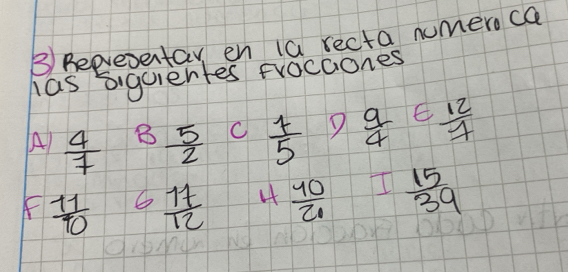 3) Representar en la recta numerica
las siguientes fracciones
A) 4/7 B 5/2 C 7/5 D 9/4 E 12/7
F 11/10 G 11/12 H 40/20 I 15/39